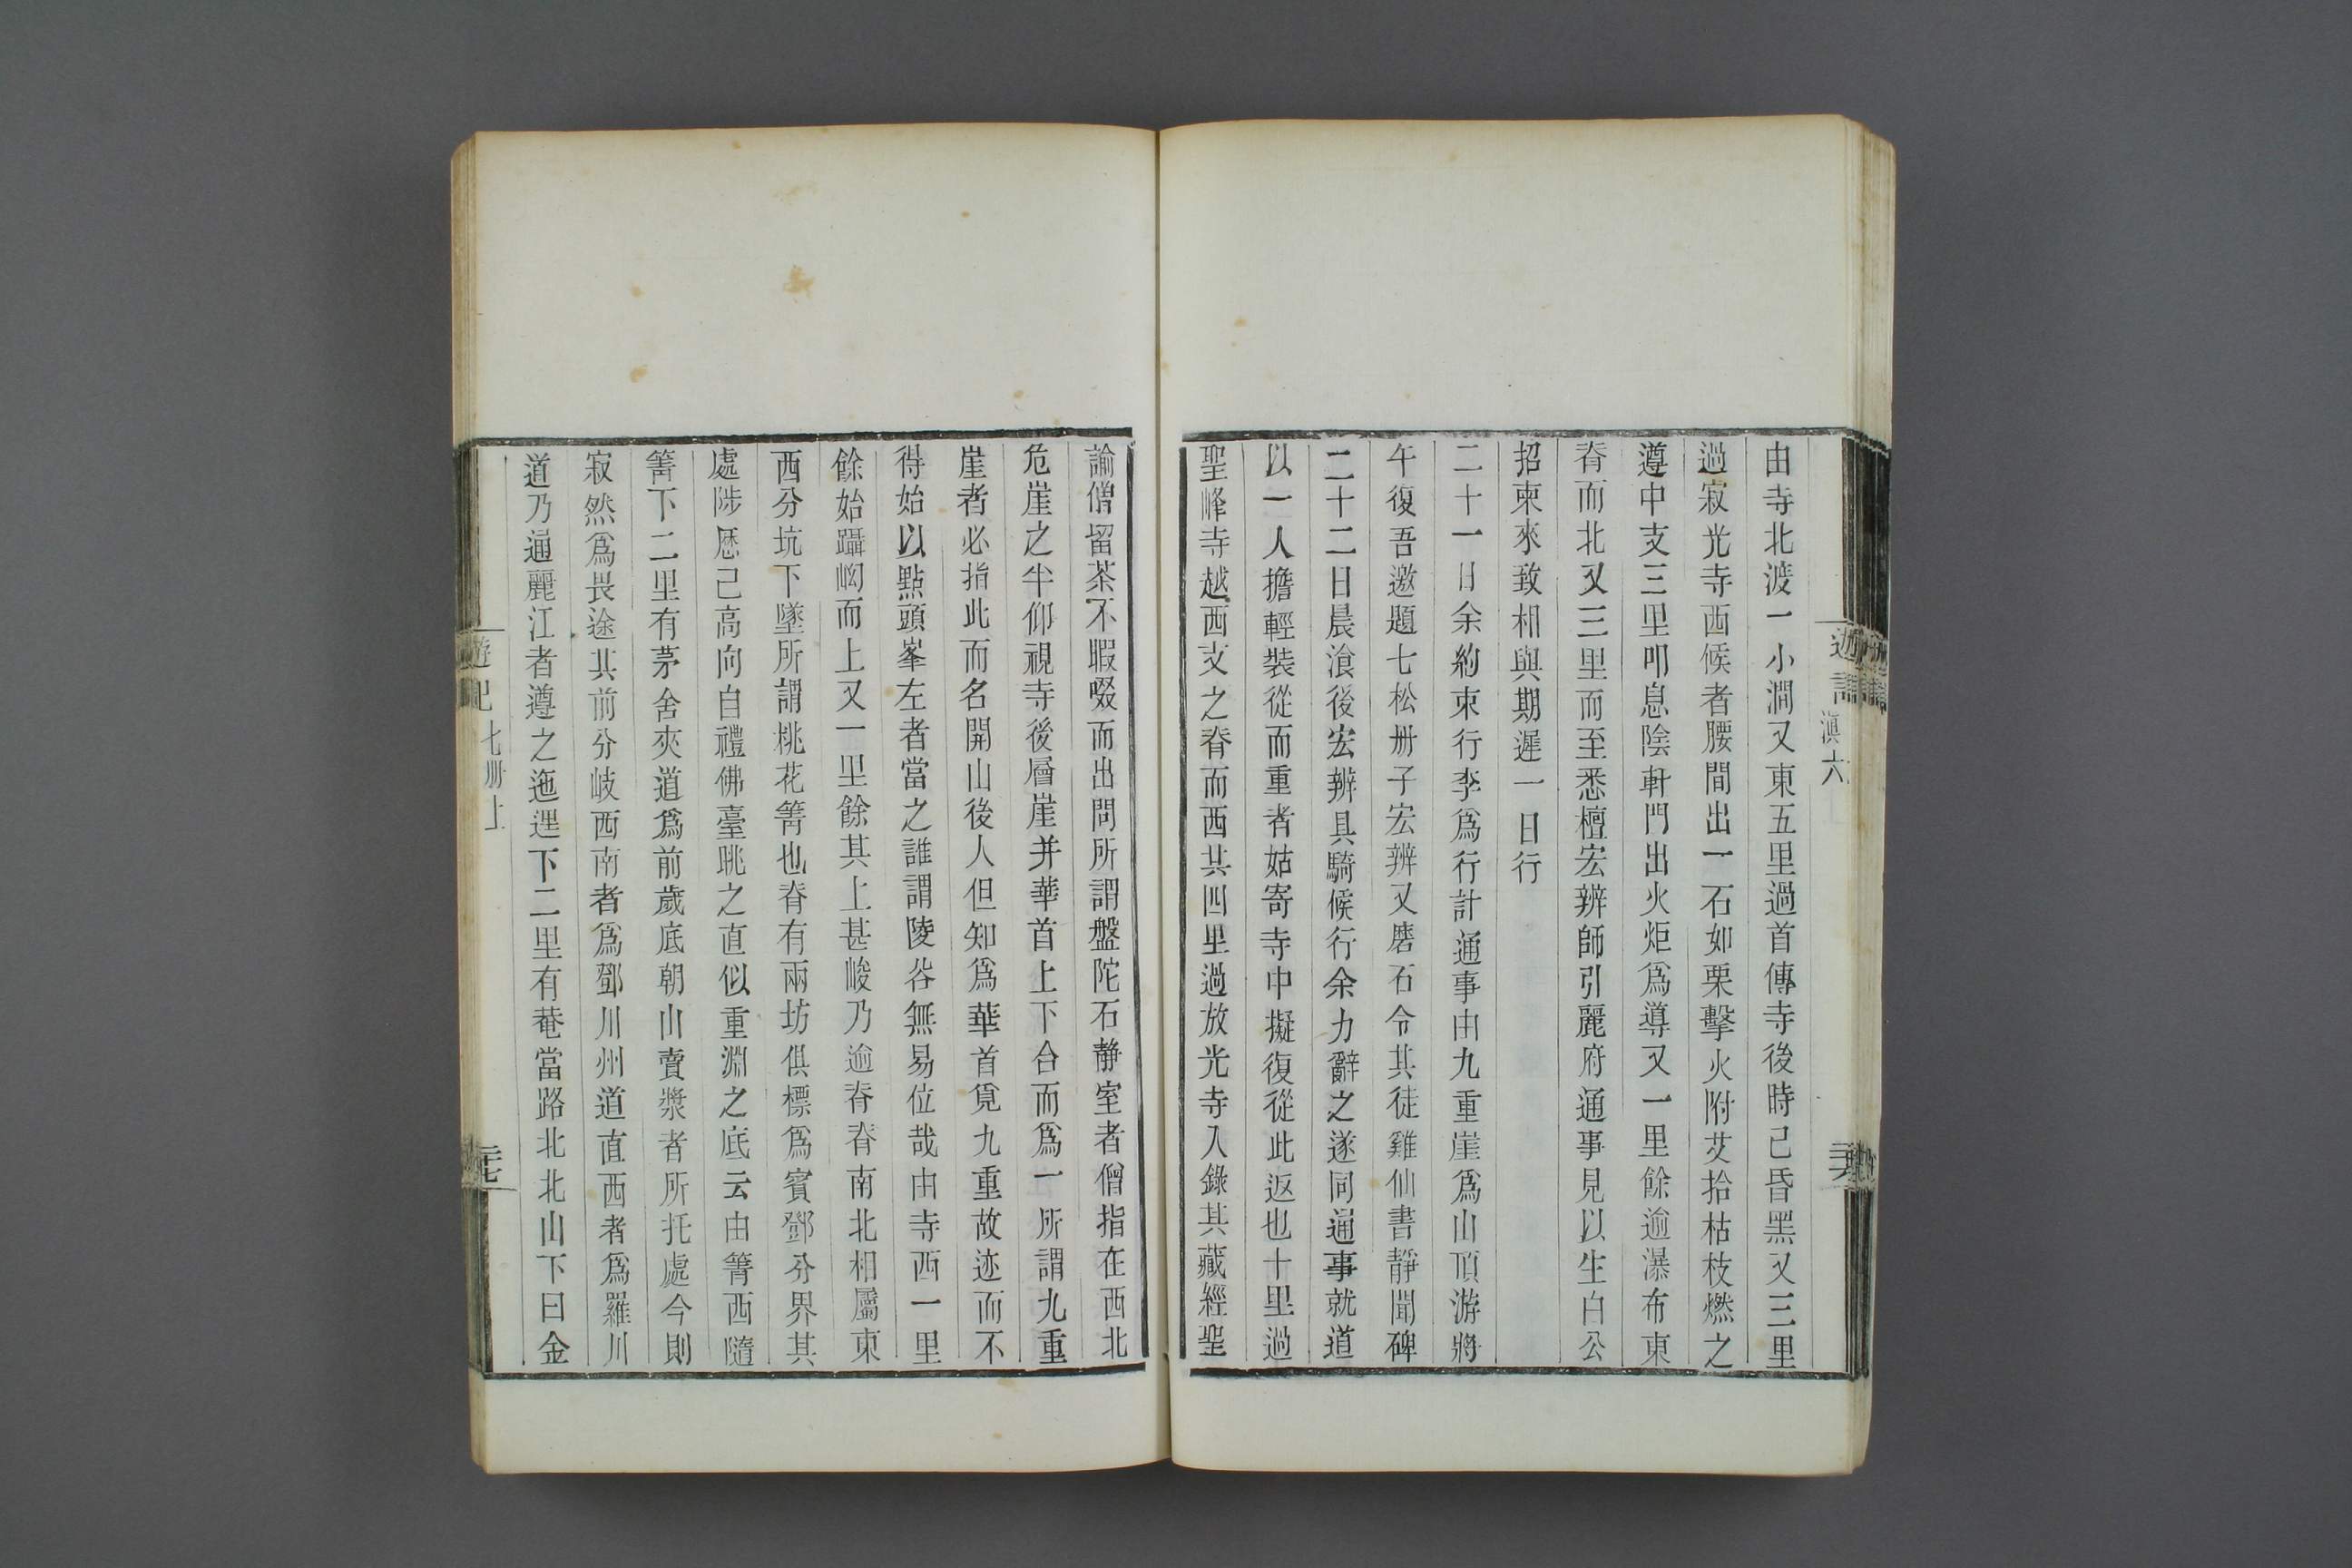 遊記
滇六
由寺北渡一小澗又東五里過首傳寺後時已昏黑又三里
過寂光寺西候者腰間出一石如栗擊火附艾拾枯枝燃之
遵中支三里叩息陰軒門出火炬爲導又一里餘逾瀑布東
脊而北又三里而至悉檀宏辨師引麗府通事見以生白公
招柬來致相與期遲一日行
二十一日余約束行李爲行計通事由九重崖爲山頂游將
午復吾邀題七松册子宏辨又磨石令其徒雞仙書靜聞碑
二十二日晨滄後宏辨具騎候行余力辭之遂同通事就道
以一人擔輕裝從而重者姑寄寺中擬復從此返也十里過
聖峰寺越西支之脊而西共四里過放光寺入錄其藏經聖
諭僧留茶不暇啜而出問所謂盤陀石靜室者僧指在西北
危崖之半仰視寺後層崖并華首上下合而爲一所謂九重
崖者必指此而名開山後人但知爲華首覓九重故迹而不
得始以點頭峯左者當之誰謂陵谷無易位哉由寺西一里
餘始躡峽而上又一里餘其上甚峻乃逾脊脊南北相屬東
西分坑下墜所謂桃花箐也脊有兩坊俱標爲賓鄧分界其
處陟歷已高向自禮佛臺眺之直似重淵之底云由箐西隨
箐下二里有茅舍夾道爲前歲底朝山賣漿者所托處今則
寂然爲畏途其前分岐西南者爲鄧川州道直西者爲羅川
道乃通麗江者遵之迤逦下二里有菴當路北北山下曰金
遊記
七册上